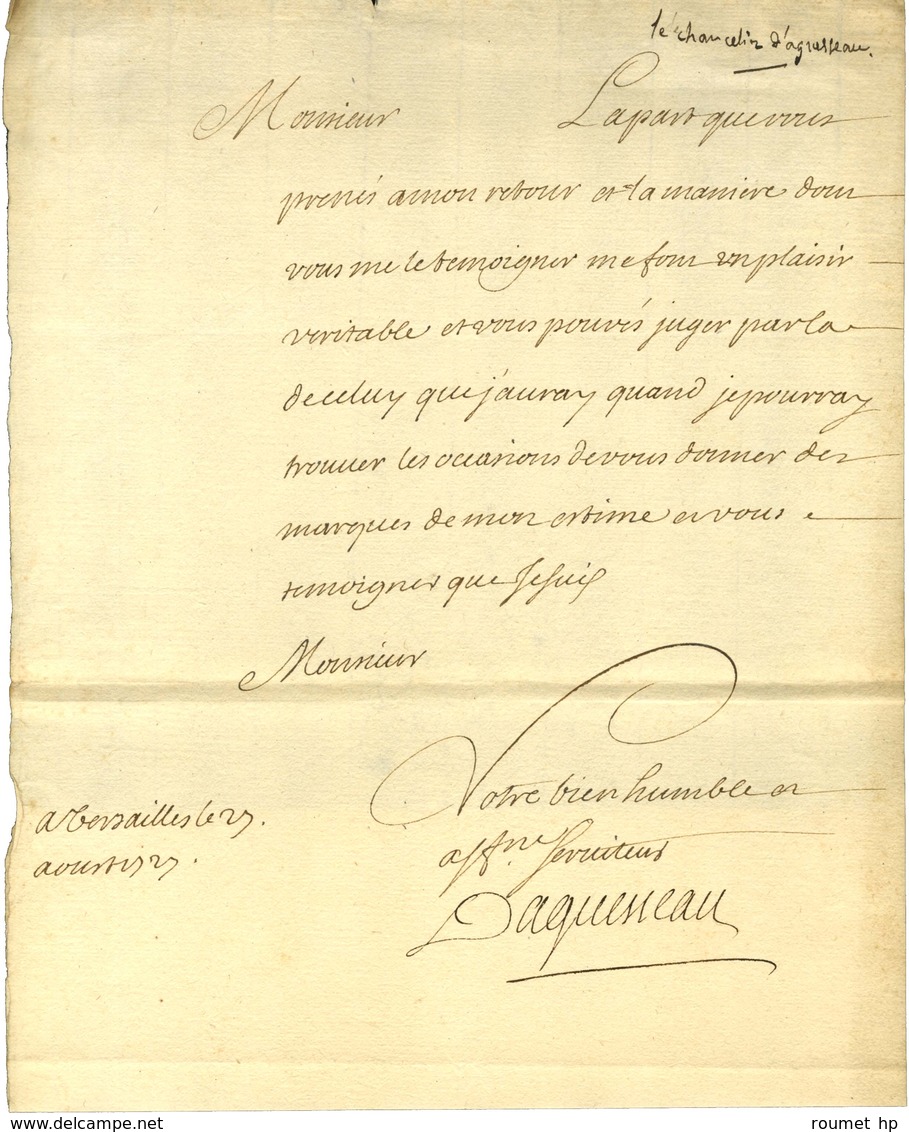 le chancelier d'aguesseau.
Monsieur La part que vous
prenés a mon retour et la maniere dont
vous me le temoigner me font un plaisir
veritable et vous pouvés juger par la
de celuy que j'auray quand je pourray
trouver les occasions de vous donner des
marques de mon estime et vous
temoigner que Je suis
Monsieur
Votre bien humble et
aff.ne serviteur
Daguesseau
a Versailles le 27.
aoust 1727.
www.delcampe.net
roumet hp